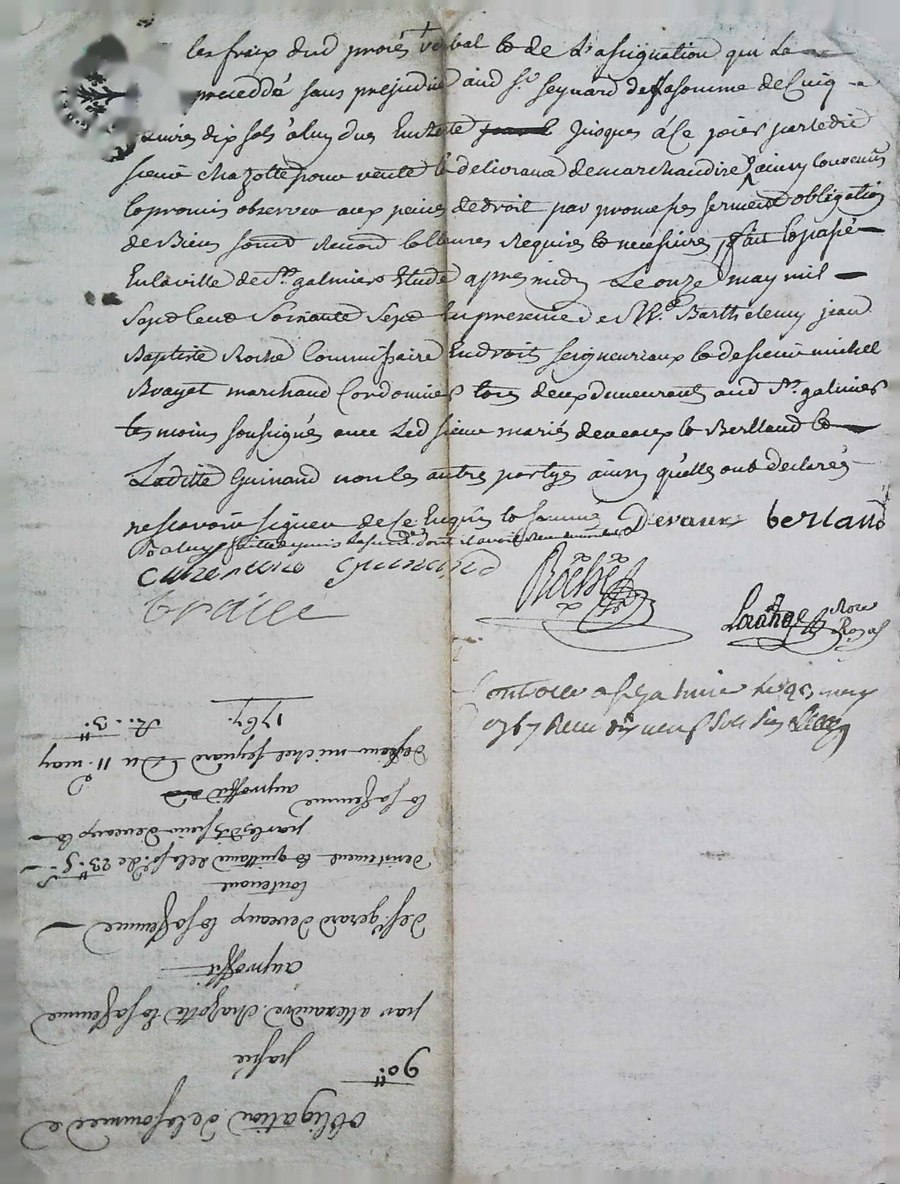 les fraix dud procés verbal & de L'assignation qui La
preceddé sans prejudice aud Sr. Seynard de sa somme de Cinq
Livres dix sols à luy dues En reste jusques à Ce jour par ledit
sieur chazotte pour vente & délivrance de marchandise, ainsy convenus
& promis observer aux peines de droit par promesses serment obligation
de Biens soumis. Renon. & clauses Requises & necessaires, fait & passé
En la ville de St. galmier Etude apres midy Le onze may mil
Sept Cent Soixante Sept En presence de Me. Barthelemy jean
Baptiste Roche Commissaire En droits seigneuriaux & de sieur michel
Boayet marchand Cordonnier tous deux demeurants aud St. galmier
temoins soussignés avec Led sieur mariés deveaux & Berland &
Laditte Guinand non les autres partyes ainsy qu'elles ont declarés
ne scavoir signer de ce Enquis & sommés Devaux berland
guinand
Roche
Controlle a St galmier le may
1767 Reçu dix neuf sols six
Obligation de la somme de
90."
passé
par allexandre chazotte & sa femme
au proffit
de Sr. gerard deveaux & sa femme
Contenant
desistement & quittance de la so. de 23." 5.s
par lesdits sieur deveaux &
& sa femme au proffit
de sieur michel Seynard Du 11. may
1767.